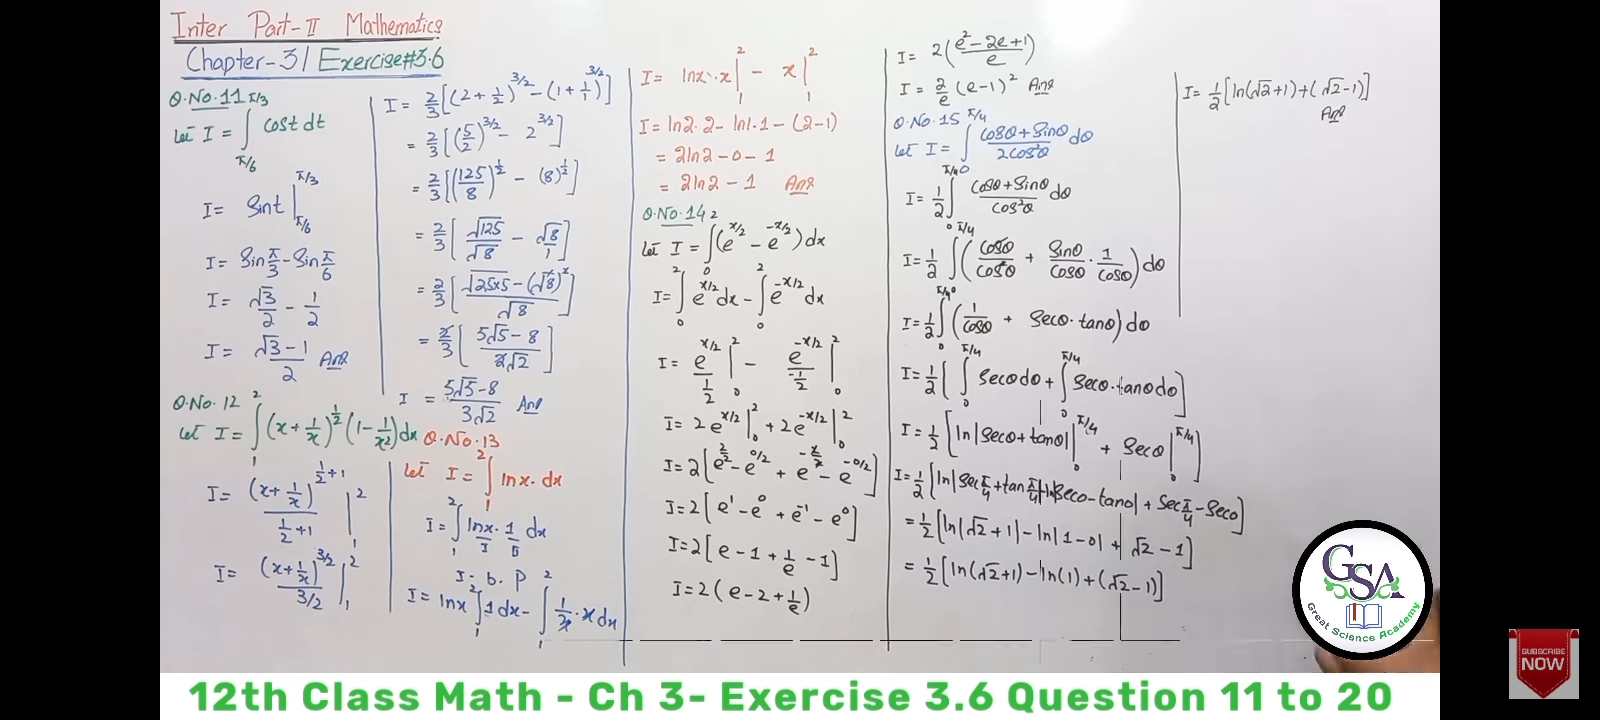 Inter Part-II Mathematics
Chapter-3/Exercise#3.6
Q.No.11
Let I = ∫_{π/6}^{π/3} Cost dt
I = Sint |_{π/6}^{π/3}
I = Sin π/3 - Sin π/6
I = √3/2 - 1/2
I = (√3-1)/2 Ans
Q.No.12
Let I = ∫_1^2 (x+1/x)^{1/2} (1-1/x²) dx
I = (x+1/x)^{1/2+1} / (1/2+1) |_1^2
I = (x+1/x)^{3/2} / (3/2) |_1^2
I = 2/3 [(2+1/2)^{3/2} - (1+1/1)^{3/2}]
= 2/3 [(5/2)^{3/2} - 2^{3/2}]
= 2/3 [(125/8)^{1/2} - (8)^{1/2}]
= 2/3 [√125/√8 - √8/1]
= 2/3 [(√25×5 - (√8)²)/√8]
= 2/3 [(5√5-8)/2√2]
I = (5√5-8)/3√2 Ans
Q.No.13
Let I = ∫_1^2 lnx.dx
I = ∫_1^2 lnx.1 dx
I.b.P
I = lnx ∫_1^2 1 dx - ∫_1^2 1/x . x dx
I = lnx.x |_1^2 - x |_1^2
I = ln2.2 - ln1.1 - (2-1)
= 2ln2 - 0 - 1
= 2ln2 - 1 Ans
Q.No.14
Let I = ∫_0^2 (e^{x/2} - e^{-x/2}) dx
I = ∫_0^2 e^{x/2} dx - ∫_0^2 e^{-x/2} dx
I = e^{x/2} / (1/2) |_0^2 - e^{-x/2} / (-1/2) |_0^2
I = 2e^{x/2} |_0^2 + 2e^{-x/2} |_0^2
I = 2[e^{2/2} - e^{0/2} + e^{-2/2} - e^{-0/2}]
I = 2[e^1 - e^0 + e^{-1} - e^0]
I = 2[e - 1 + 1/e - 1]
I = 2(e - 2 + 1/e)
I = 2((e²-2e+1)/e)
I = 2/e (e-1)² Ans
Q.No.15
Let I = ∫_0^{π/4} (Cosθ+Sinθ)/2Cos²θ dθ
I = 1/2 ∫_0^{π/4} (Cosθ+Sinθ)/Cos²θ dθ
I = 1/2 ∫_0^{π/4} (Cosθ/Cos²θ + Sinθ/Cosθ . 1/Cosθ) dθ
I = 1/2 ∫_0^{π/4} (1/Cosθ + Secθ.tanθ) dθ
I = 1/2 [∫_0^{π/4} Secθdθ + ∫_0^{π/4} Secθ.tanθdθ]
I = 1/2 [ln|Secθ+tanθ| |_0^{π/4} + Secθ |_0^{π/4}]
I = 1/2 [ln|Sec π/4 + tan π/4| - ln|Sec0-tan0| + Sec π/4 - Sec0]
= 1/2 [ln|√2+1| - ln|1-0| + √2-1]
= 1/2 [ln(√2+1) - ln(1) + (√2-1)]
I = 1/2 [ln(√2+1)+(√2-1)]
Ans
GSA
Great Science Academy
SUBSCRIBE
NOW
12th Class Math - Ch 3- Exercise 3.6 Question 11 to 20